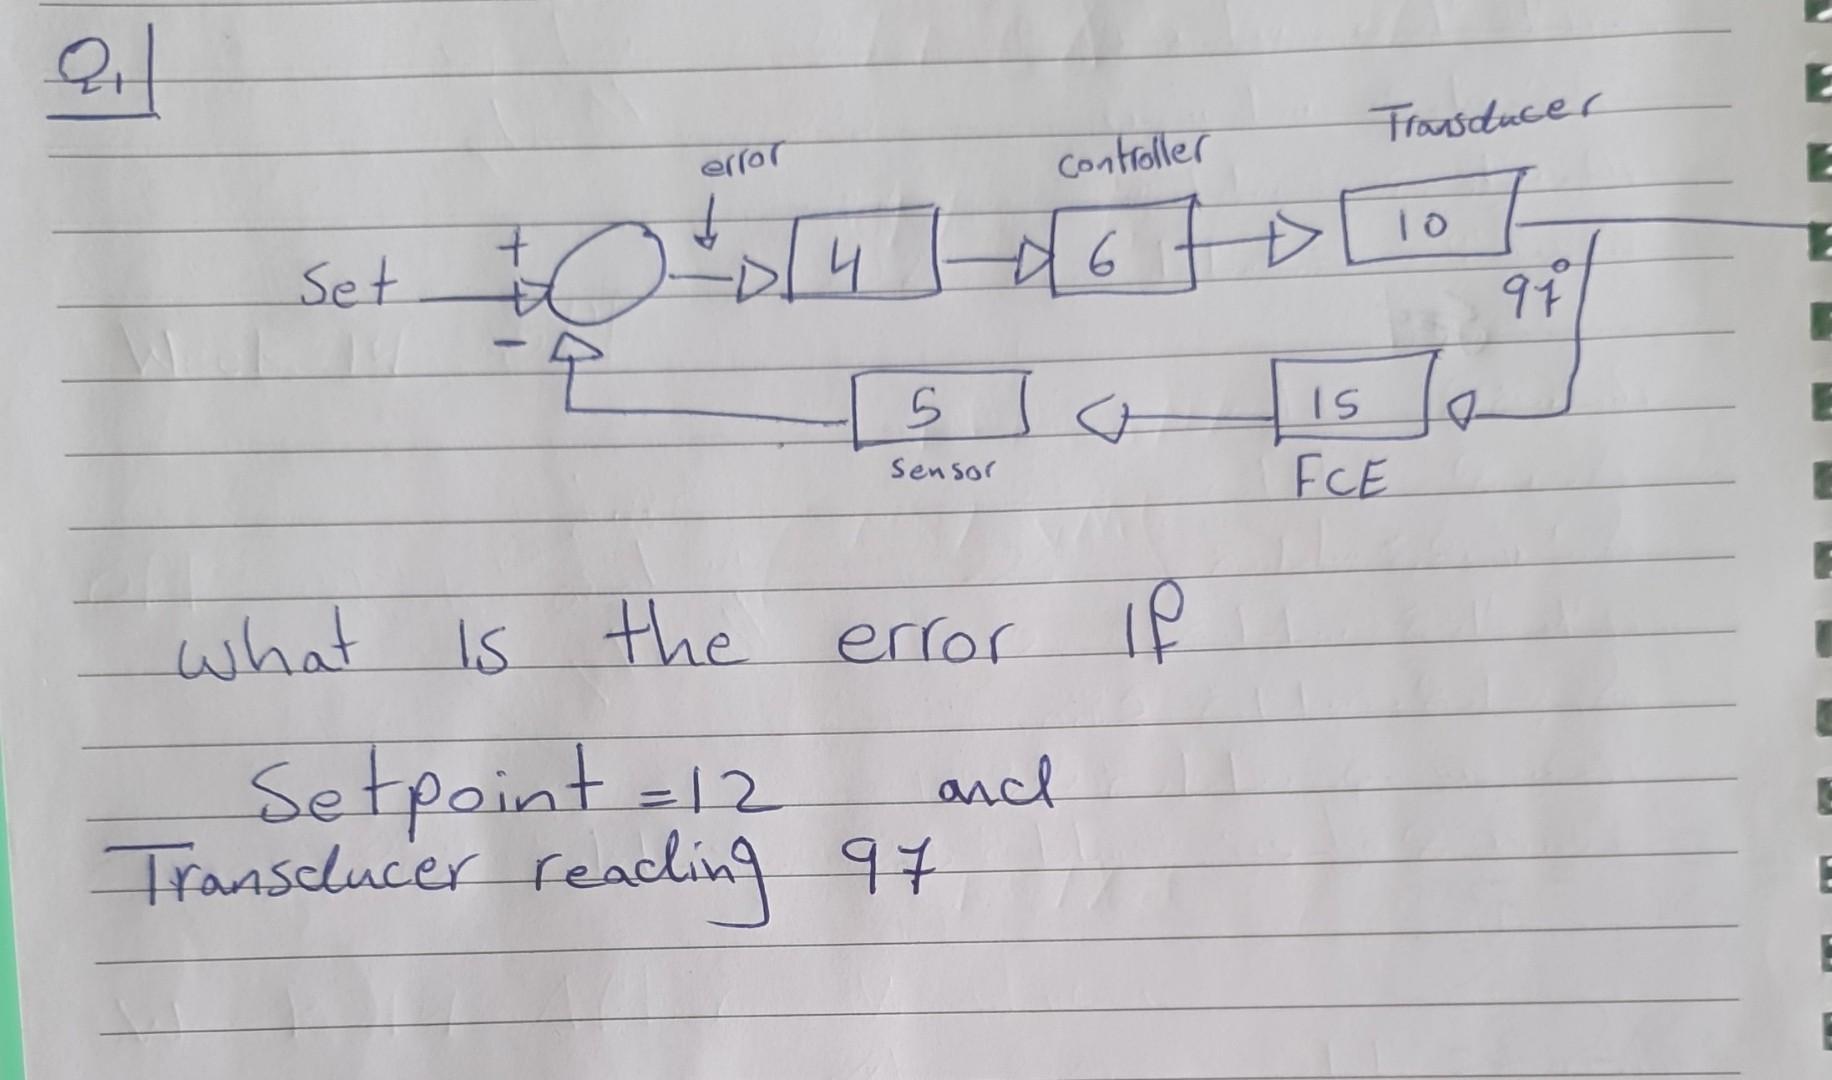 Q1
Transducer
error
controller
Set + 4 6 10
97°
-
5 15
Sensor FCE
what Is the error If
Setpoint = 12 and
Transducer reading 97